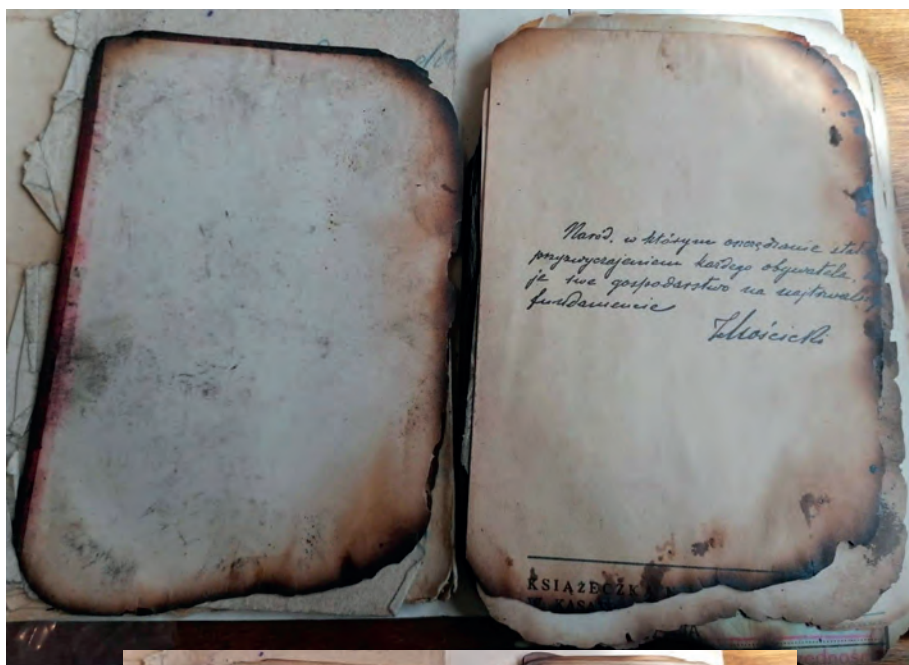 Naród, w którym oszczędzanie
przyzwyczajeniem każdego obywatela,
je swe gospodarstwo na
fundamencie
IMościcki
KSIĄŻECZKA